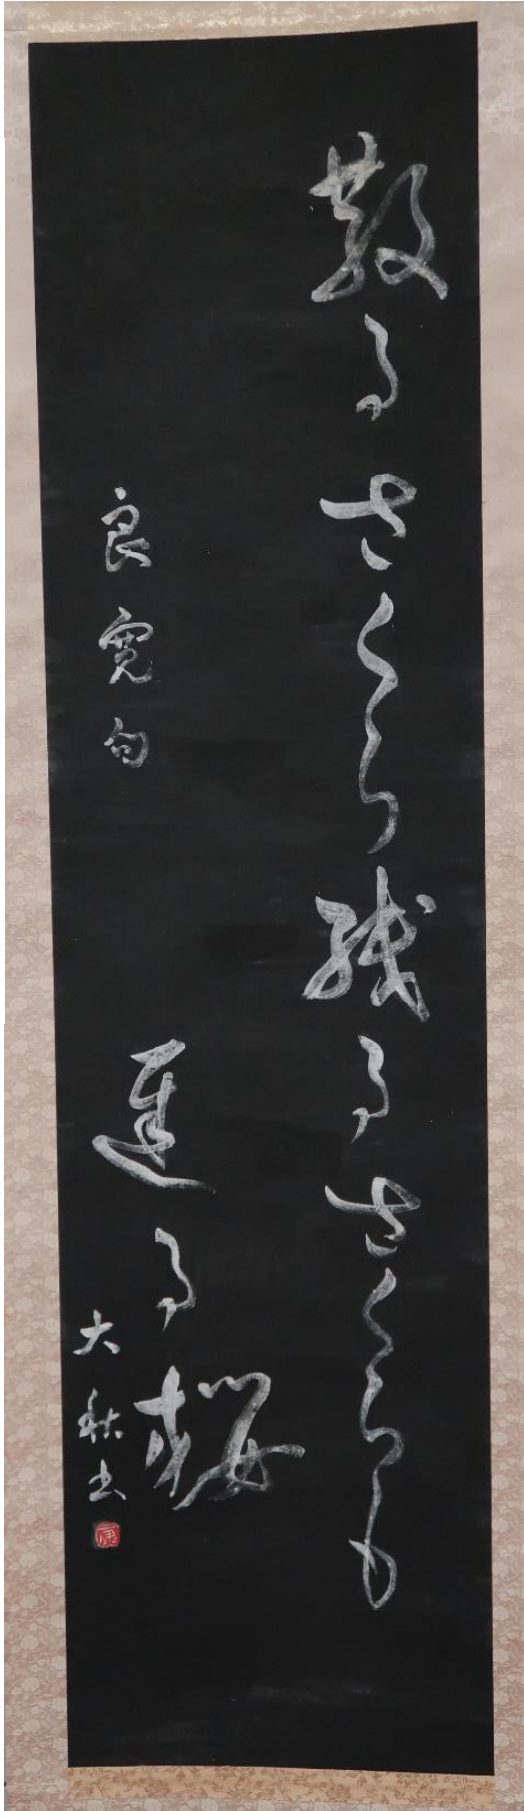 散るさくら残るさくらも
遅る桜
良寛句
大秋書